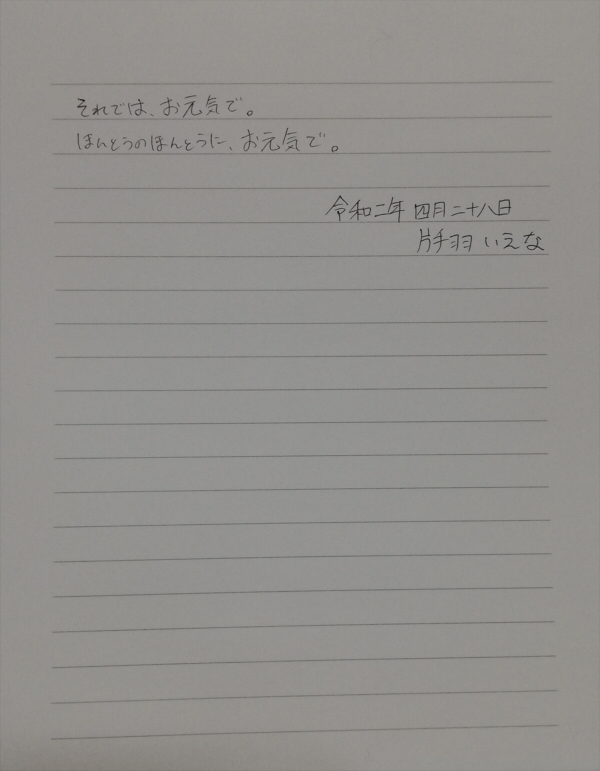 それでは、お元気で。
ほんとうのほんとうに、お元気で。
令和二年 四月二十八日
片手羽 いえな